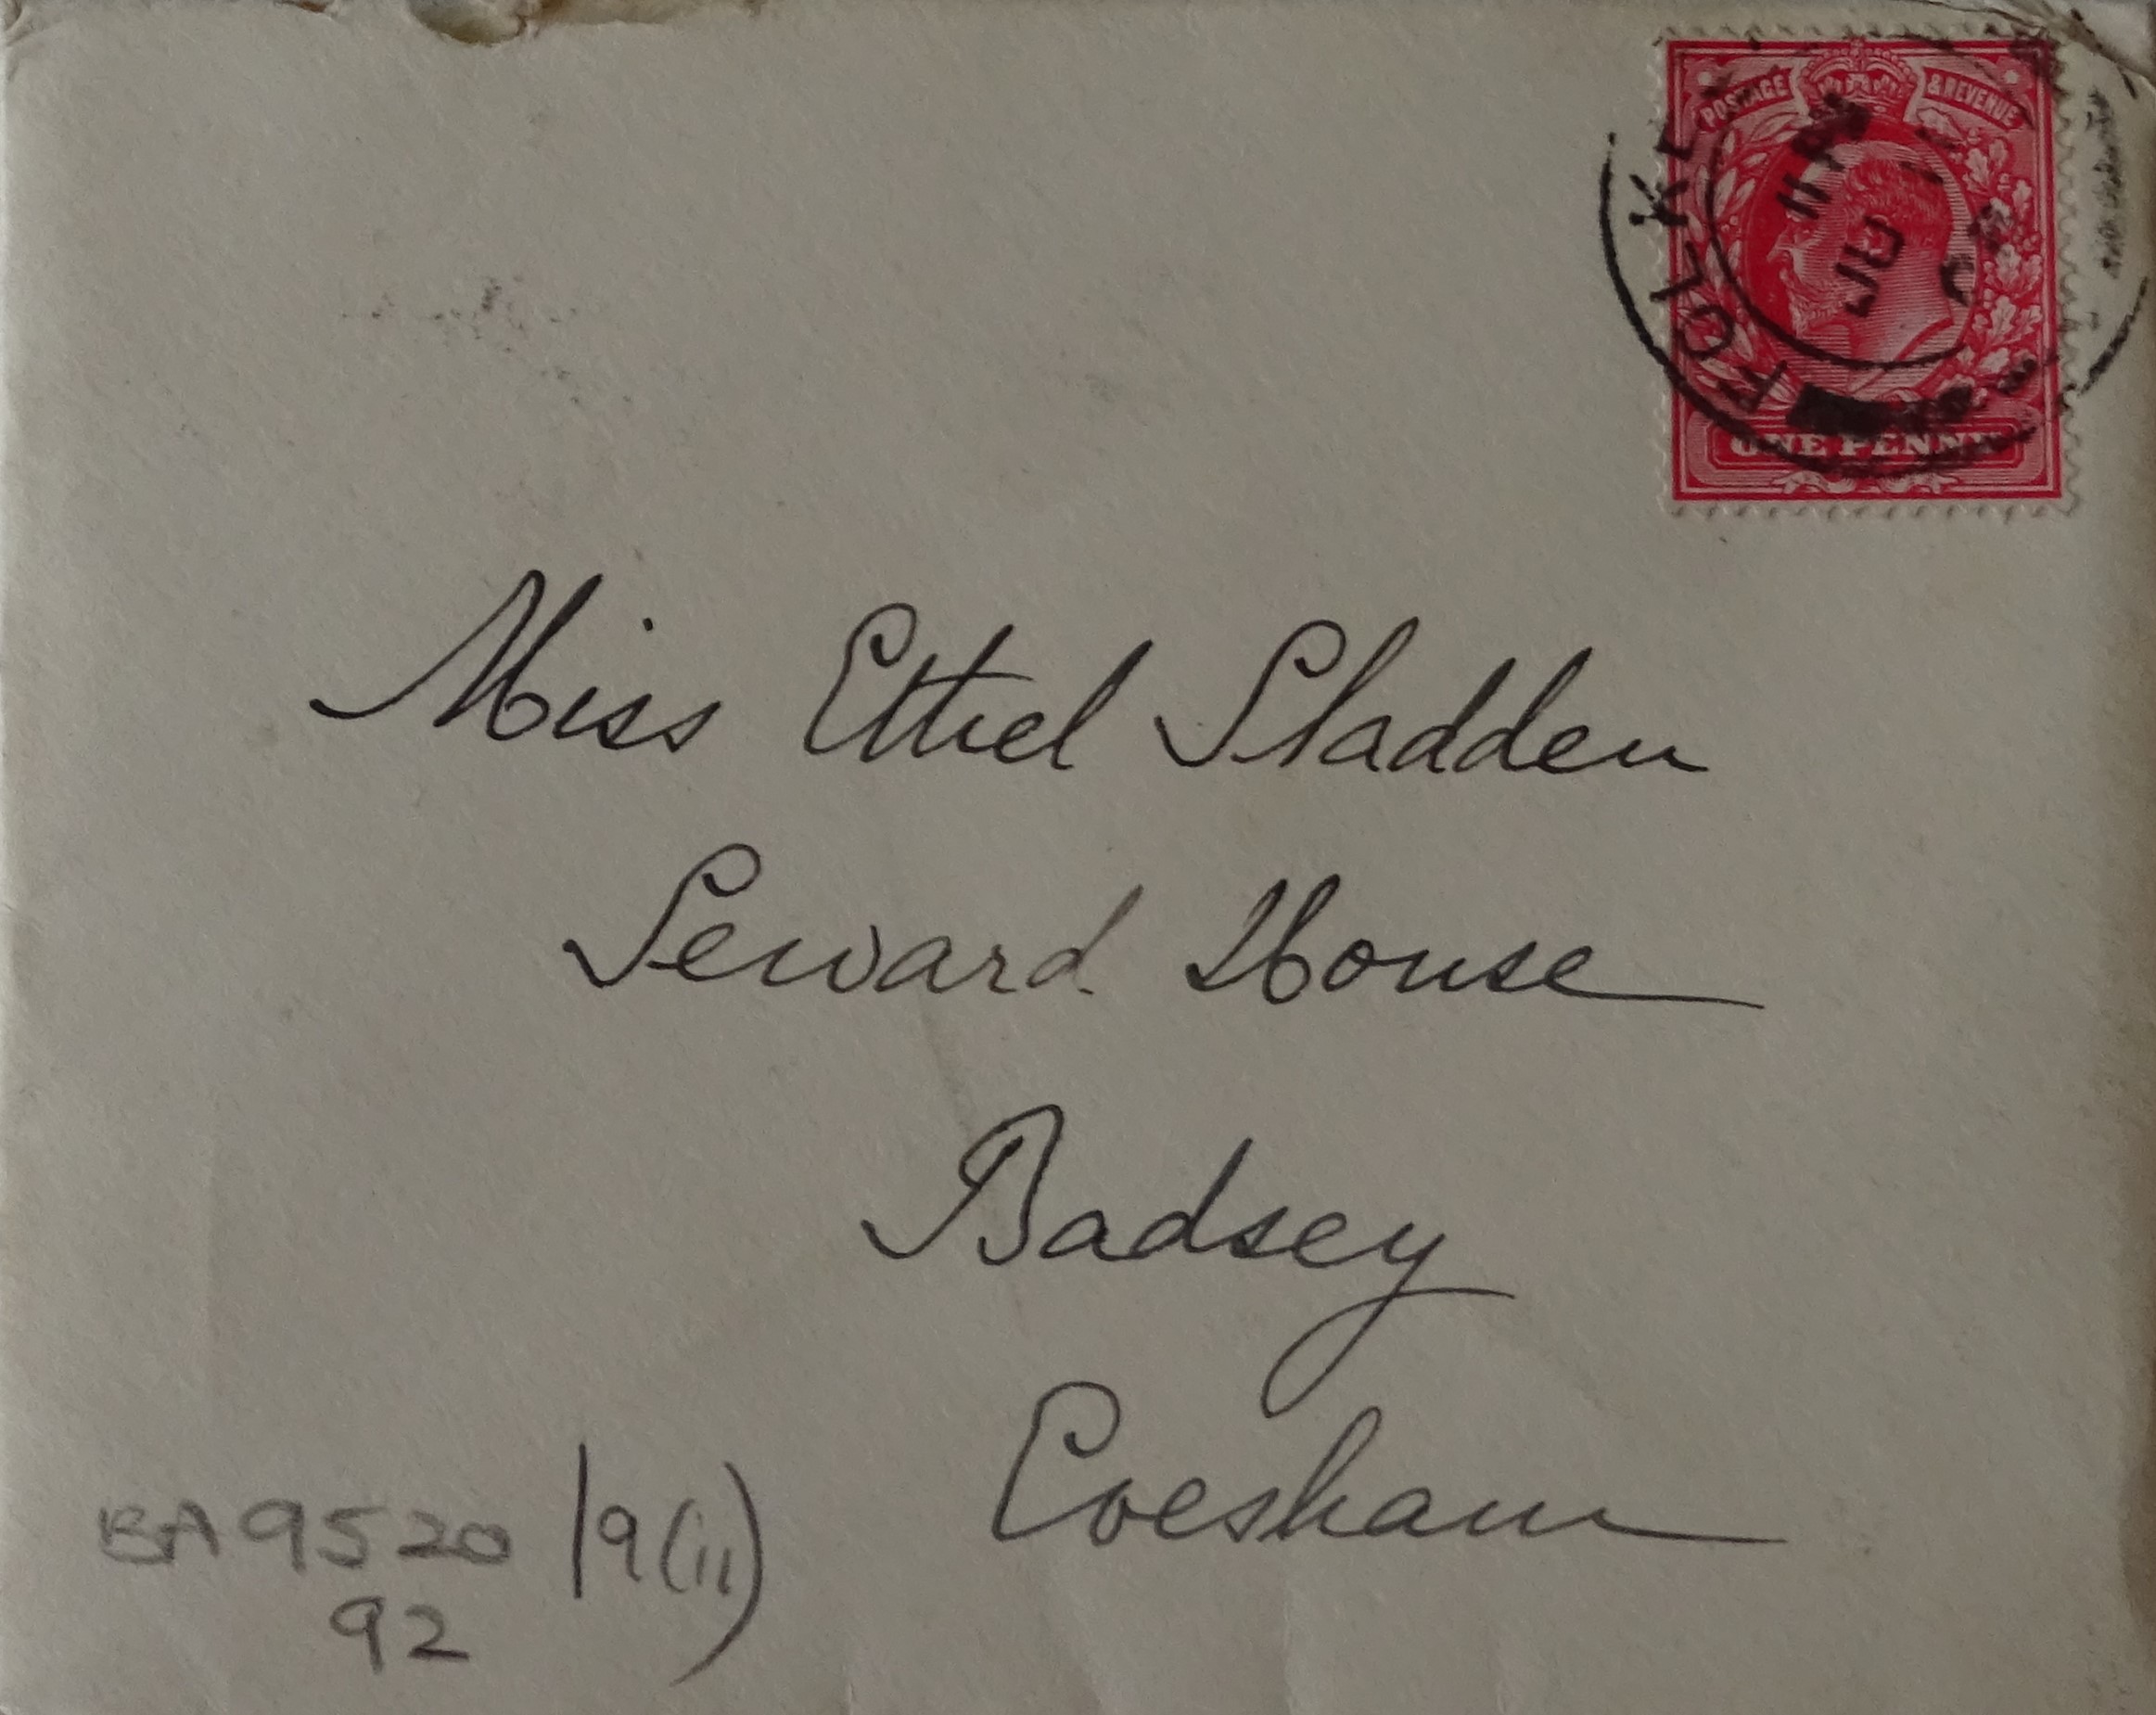 POSTAGE & REVENUE
ONE PENNY
FOLKE
Miss Ethel Sladden
Seward House
Badsey
Evesham
BA 9520 /9(ii)
92